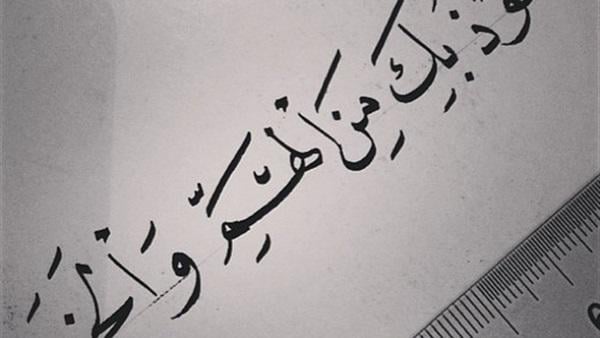 وذ بِكَ مِنَ الْهَمِّ وَالْحَزَ